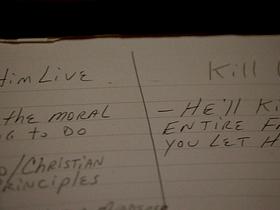 Him Live
Kill
the moral
G to Do
O/Christian
rinciples
- He'll Ki
Entire F
you let H